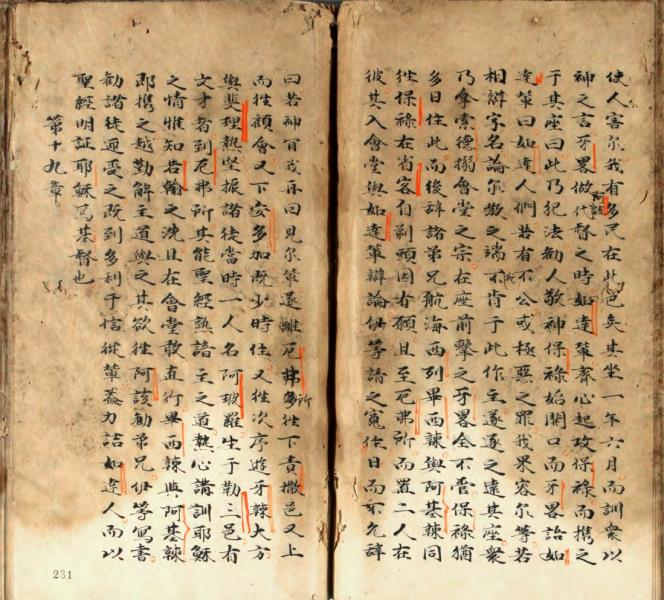 使人害尔我有多民在此邑矣其坐一年六月而訓衆以
神之言牙畧做代督之時如達輩齊心起攻保祿而攜之
于其座曰此乃犯法勸人敬神保祿始開口而牙畧詥如
達輩曰如達人們若有不公或極惡之罪我果容尔等若
相辯字名論尔教之端不肯于此作主遂逐之遠其座衆
乃拿索德搦會堂之宗在座前擊之牙畧全不管保祿猶
多日住此而後辞諸弟兄航海西列畢西辣與阿基辣同
徃保祿在省客自剃頭因有願且至厄弗所而置二人在
彼其入會堂與如達輩辯論伊等請之寬住日而不允辞
曰若神旨我再囬見尔輩遂離厄弗所徃下責撒邑又上
而徃顧會又下安多加既少時住又徃次序遊牙辣大方
與斐理熱堅振諸徒當時一人名阿玻羅生于勒三邑有
文才者到厄弗所其能聖經熟諳主之道熱心講訓耶穌
之情惟知若翰之洗且在會堂敢直行畢西辣與阿基辣
即携之越勤解主道與之其欲徃阿該勸弟兄伊等寫書
勸諸徒通受之既到多利于信徒輩蓋力詰如達人而以
聖經明証耶穌爲基督也
第十九章
231